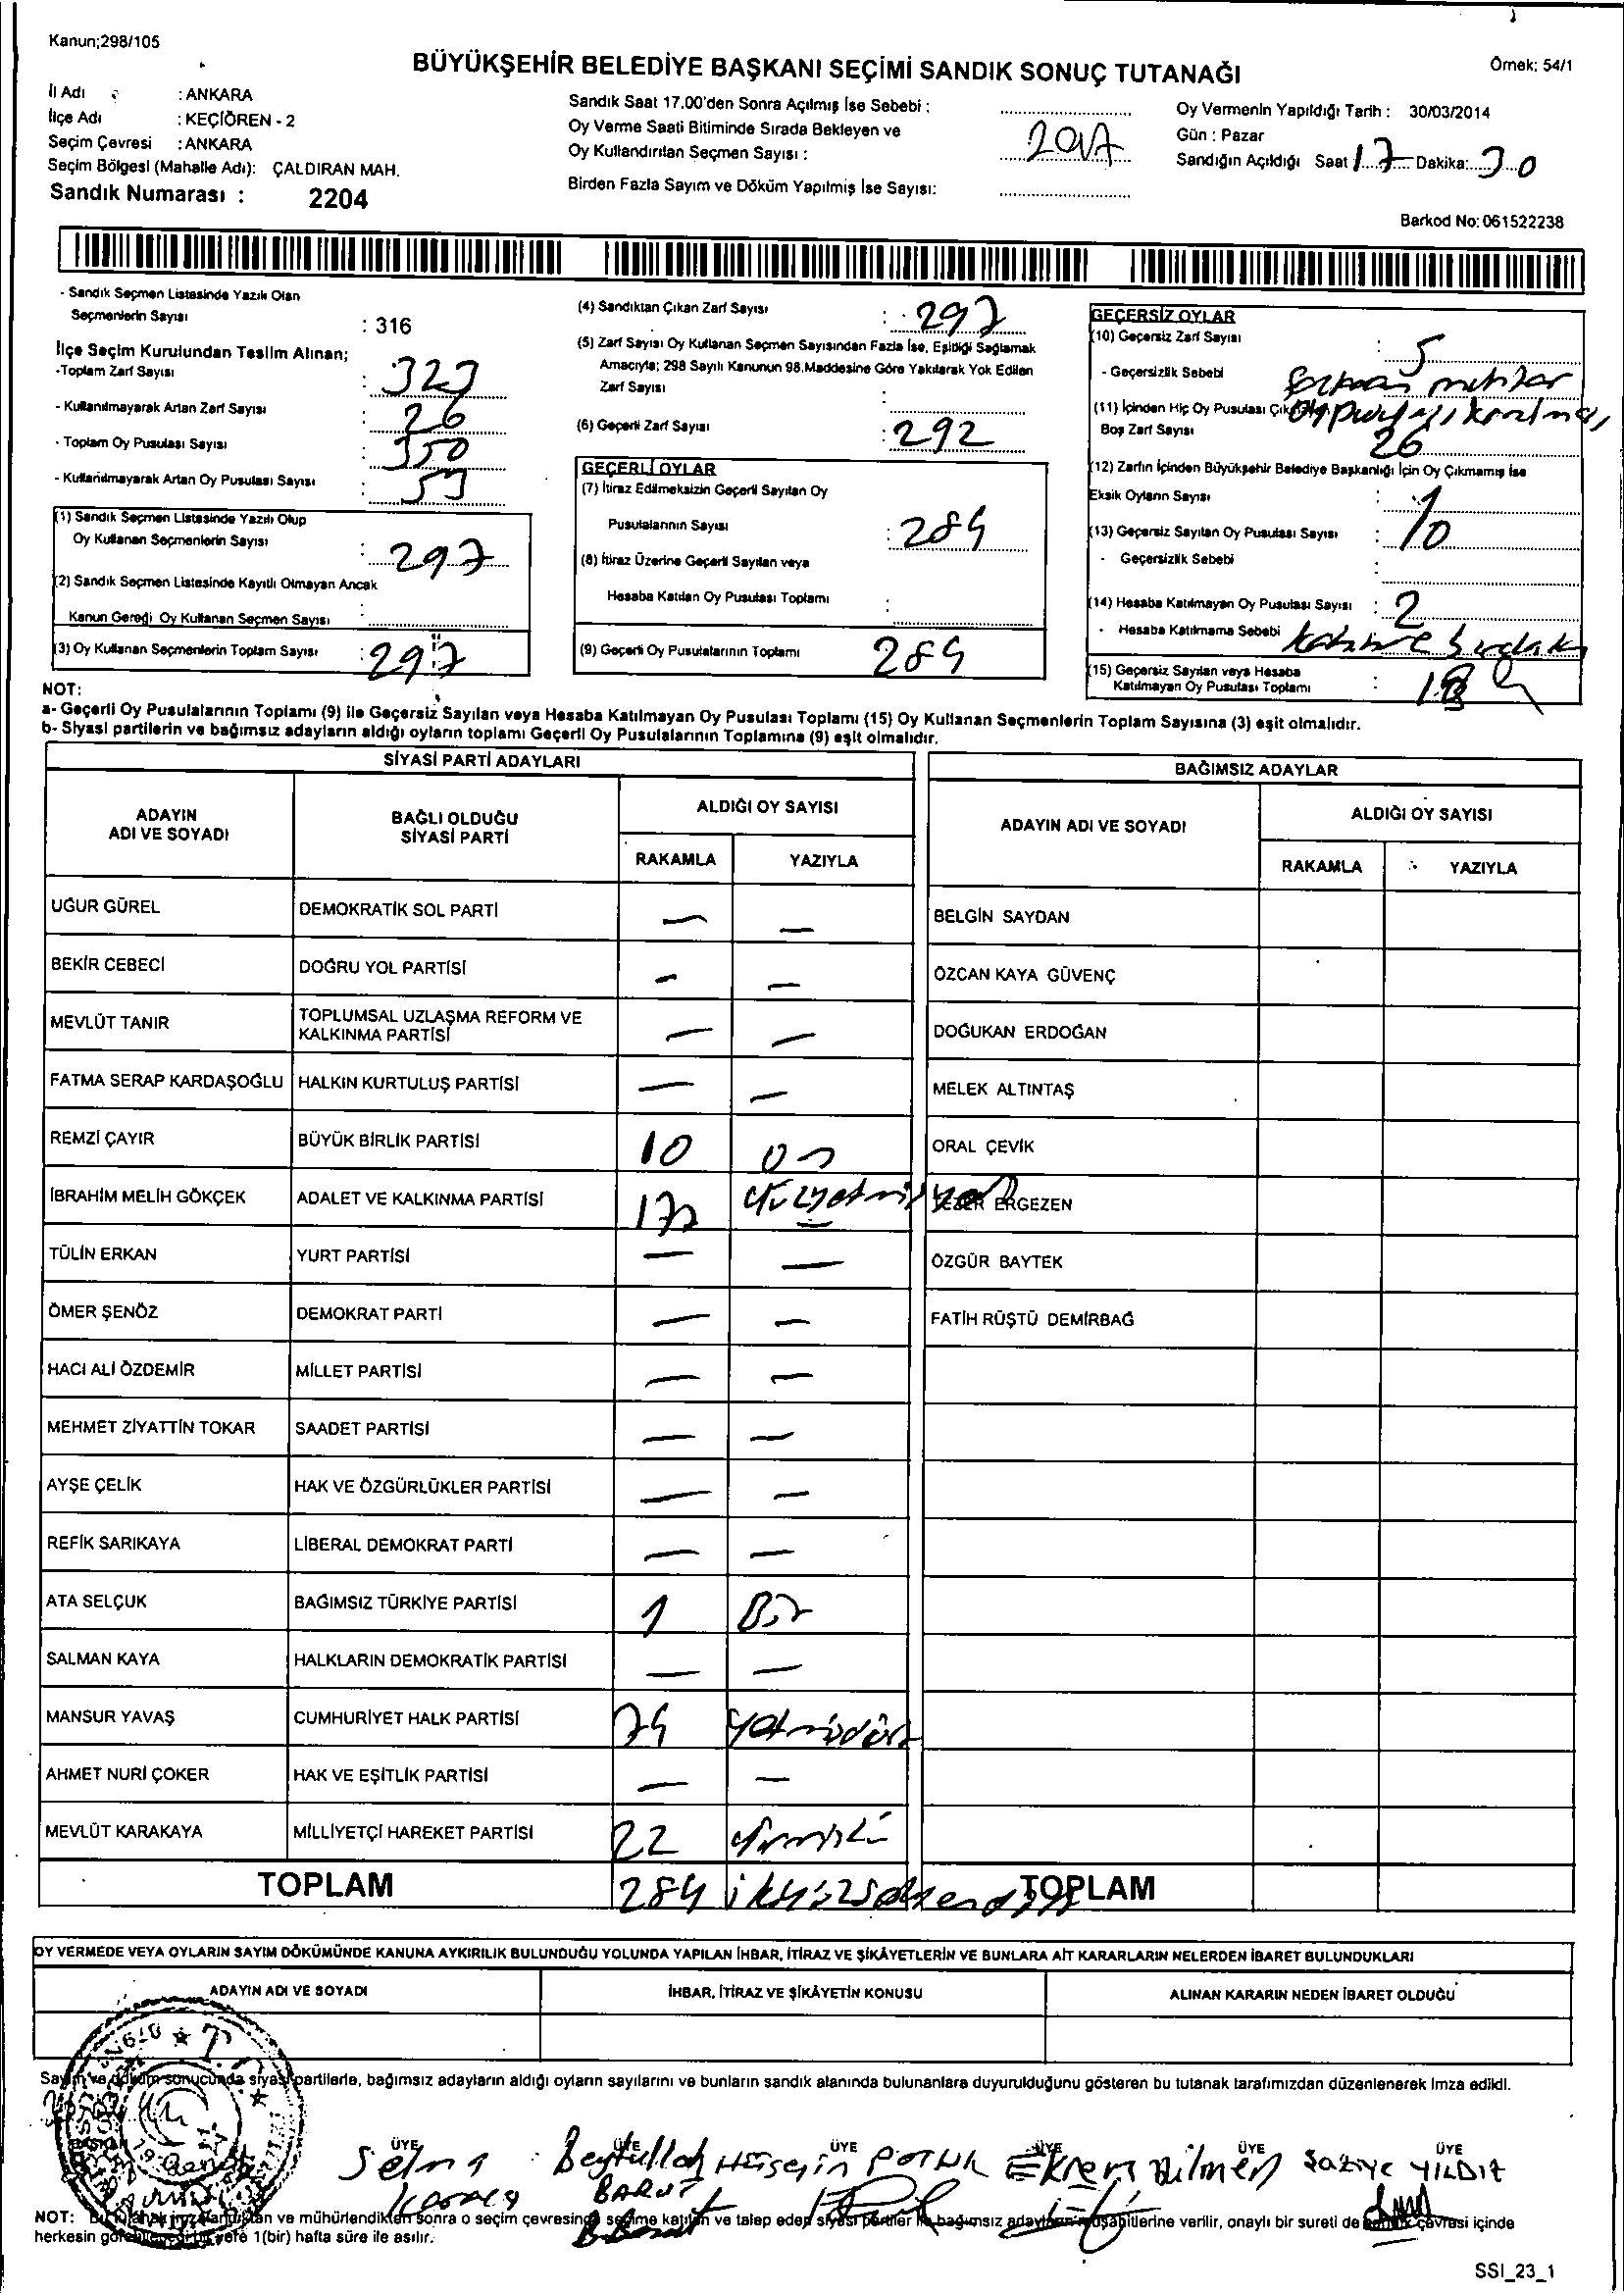 Kanun;298/105
BÜYÜKŞEHİR BELEDİYE BAŞKANI SEÇİMİ SANDIK SONUÇ TUTANAĞI
Örnek: 54/1
İl Adı : ANKARA
İlçe Adı : KEÇİÖREN - 2
Seçim Çevresi : ANKARA
Seçim Bölgesi (Mahalle Adı): ÇALDIRAN MAH.
Sandık Numarası : 2204
Sandık Saat 17.00'den Sonra Açılmış İse Sebebi :
Oy Verme Saati Bitiminde Sırada Bekleyen ve
Oy Kullandırılan Seçmen Sayısı :
Birden Fazla Sayım ve Döküm Yapılmış İse Sayısı:
Oy Vermenin Yapıldığı Tarih : 30/03/2014
Gün : Pazar
Sandığın Açıldığı Saat 17 Dakika: 30
Barkod No: 061522238
- Sandık Seçmen Listesinde Yazılı Olan
Seçmenlerin Sayısı : 316
İlçe Seçim Kurulundan Teslim Alınan;
-Toplam Zarf Sayısı : 323
- Kullanılmayarak Artan Zarf Sayısı : 26
- Toplam Oy Pusulası Sayısı : 350
- Kullanılmayarak Artan Oy Pusulası Sayısı : 53
(1) Sandık Seçmen Listesinde Yazılı Olup
Oy Kullanan Seçmenlerin Sayısı : 297
(2) Sandık Seçmen Listesinde Kayıtlı Olmayan Ancak
Kanun Gereği Oy Kullanan Seçmen Sayısı :
(3) Oy Kullanan Seçmenlerin Toplam Sayısı : 297
(4) Sandıktan Çıkan Zarf Sayısı : 297
(5) Zarf Sayısı Oy Kullanan Seçmen Sayısından Fazla İse, Eşitliği Sağlamak
Amacıyla; 298 Sayılı Kanunun 98.Maddesine Göre Yakılarak Yok Edilen
Zarf Sayısı :
(6) Geçerli Zarf Sayısı : 292
GEÇERLİ OYLAR
(7) İtiraz Edilmeksizin Geçerli Sayılan Oy
Pusulalarının Sayısı : 284
(8) İtiraz Üzerine Geçerli Sayılan veya
Hesaba Katılan Oy Pusulası Toplamı :
(9) Geçerli Oy Pusulalarının Toplamı 284
GEÇERSİZ OYLAR
(10) Geçersiz Zarf Sayısı : 5
- Geçersizlik Sebebi
(11) İçinden Hiç Oy Pusulası Çıkmayan
Boş Zarf Sayısı 26
(12) Zarfın İçinden Büyükşehir Belediye Başkanlığı İçin Oy Çıkmamış İse
Eksik Oyların Sayısı :
(13) Geçersiz Sayılan Oy Pusulası Sayısı : 10
- Geçersizlik Sebebi :
(14) Hesaba Katılmayan Oy Pusulası Sayısı : 2
- Hesaba Katılmama Sebebi
(15) Geçersiz Sayılan veya Hesaba
Katılmayan Oy Pusulası Toplamı :
NOT:
a- Geçerli Oy Pusulalarının Toplamı (9) ile Geçersiz Sayılan veya Hesaba Katılmayan Oy Pusulası Toplamı (15) Oy Kullanan Seçmenlerin Toplam Sayısına (3) eşit olmalıdır.
b- Siyasi partilerin ve bağımsız adayların aldığı oyların toplamı Geçerli Oy Pusulalarının Toplamına (9) eşit olmalıdır.
SİYASİ PARTİ ADAYLARI
ADAYIN ADI VE SOYADI
BAĞLI OLDUĞU SİYASİ PARTİ
ALDIĞI OY SAYISI
RAKAMLA YAZIYLA
BAĞIMSIZ ADAYLAR
ADAYIN ADI VE SOYADI
ALDIĞI OY SAYISI
RAKAMLA YAZIYLA
UĞUR GÜREL DEMOKRATİK SOL PARTİ — — BELGİN SAYDAN
BEKİR CEBECİ DOĞRU YOL PARTİSİ — — ÖZCAN KAYA GÜVENÇ
MEVLÜT TANIR TOPLUMSAL UZLAŞMA REFORM VE KALKINMA PARTİSİ — — DOĞUKAN ERDOĞAN
FATMA SERAP KARDAŞOĞLU HALKIN KURTULUŞ PARTİSİ — — MELEK ALTINTAŞ
REMZİ ÇAYIR BÜYÜK BİRLİK PARTİSİ 10 on ORAL ÇEVİK
İBRAHİM MELİH GÖKÇEK ADALET VE KALKINMA PARTİSİ 177 yüzyetmişyedi ERGEZEN
TÜLİN ERKAN YURT PARTİSİ — — ÖZGÜR BAYTEK
ÖMER ŞENÖZ DEMOKRAT PARTİ — — FATİH RÜŞTÜ DEMİRBAĞ
HACI ALİ ÖZDEMİR MİLLET PARTİSİ — —
MEHMET ZİYATTİN TOKAR SAADET PARTİSİ — —
AYŞE ÇELİK HAK VE ÖZGÜRLÜKLER PARTİSİ — —
REFİK SARIKAYA LİBERAL DEMOKRAT PARTİ — —
ATA SELÇUK BAĞIMSIZ TÜRKİYE PARTİSİ 1 Bir
SALMAN KAYA HALKLARIN DEMOKRATİK PARTİSİ — —
MANSUR YAVAŞ CUMHURİYET HALK PARTİSİ 74 yetmişdört
AHMET NURİ ÇOKER HAK VE EŞİTLİK PARTİSİ — —
MEVLÜT KARAKAYA MİLLİYETÇİ HAREKET PARTİSİ 22 yirmiiki
TOPLAM 284 ikiyüzseksendört TOPLAM
OY VERMEDE VEYA OYLARIN SAYIM DÖKÜMÜNDE KANUNA AYKIRILIK BULUNDUĞU YOLUNDA YAPILAN İHBAR, İTİRAZ VE ŞİKÂYETLERİN VE BUNLARA AİT KARARLARIN NELERDEN İBARET BULUNDUKLARI
ADAYIN ADI VE SOYADI
İHBAR, İTİRAZ VE ŞİKÂYETİN KONUSU
ALINAN KARARIN NEDEN İBARET OLDUĞU
Sayım ve döküm sonucunda siyasi partilerle, bağımsız adayların aldığı oyların sayılarını ve bunların sandık alanında bulunanlara duyurulduğunu gösteren bu tutanak tarafımızdan düzenlenerek imza edildi.
ÜYE ÜYE ÜYE ÜYE ÜYE ÜYE
Selma Beytullah Hüseyin Ekrem Bilmen Saziye YILDIZ
BARUT
NOT: Bu tutanak imzalandıktan ve mühürlendikten sonra o seçim çevresinde seçime katılan ve talep eden siyasi partiler ile bağımsız adayların müşahitlerine verilir, onaylı bir sureti de sandık çevresi içinde
herkesin görebileceği bir yere 1(bir) hafta süre ile asılır.
SSI_23_1